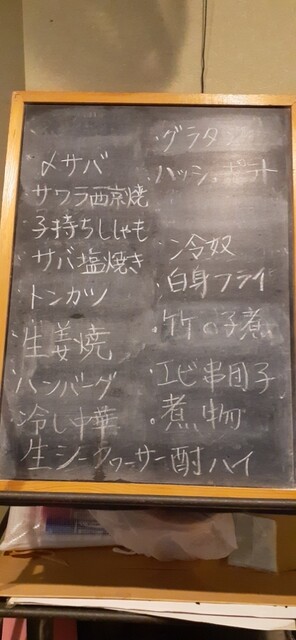 〆サバ
サワラ西京焼
子持ちししゃも
サバ塩焼き
トンカツ
生姜焼
ハンバーグ
冷し中華
生シークヮーサー酎ハイ
・グラタン
・ハッシュポテト
・冷奴
・白身フライ
・竹の子煮
・エビ串団子
・煮物